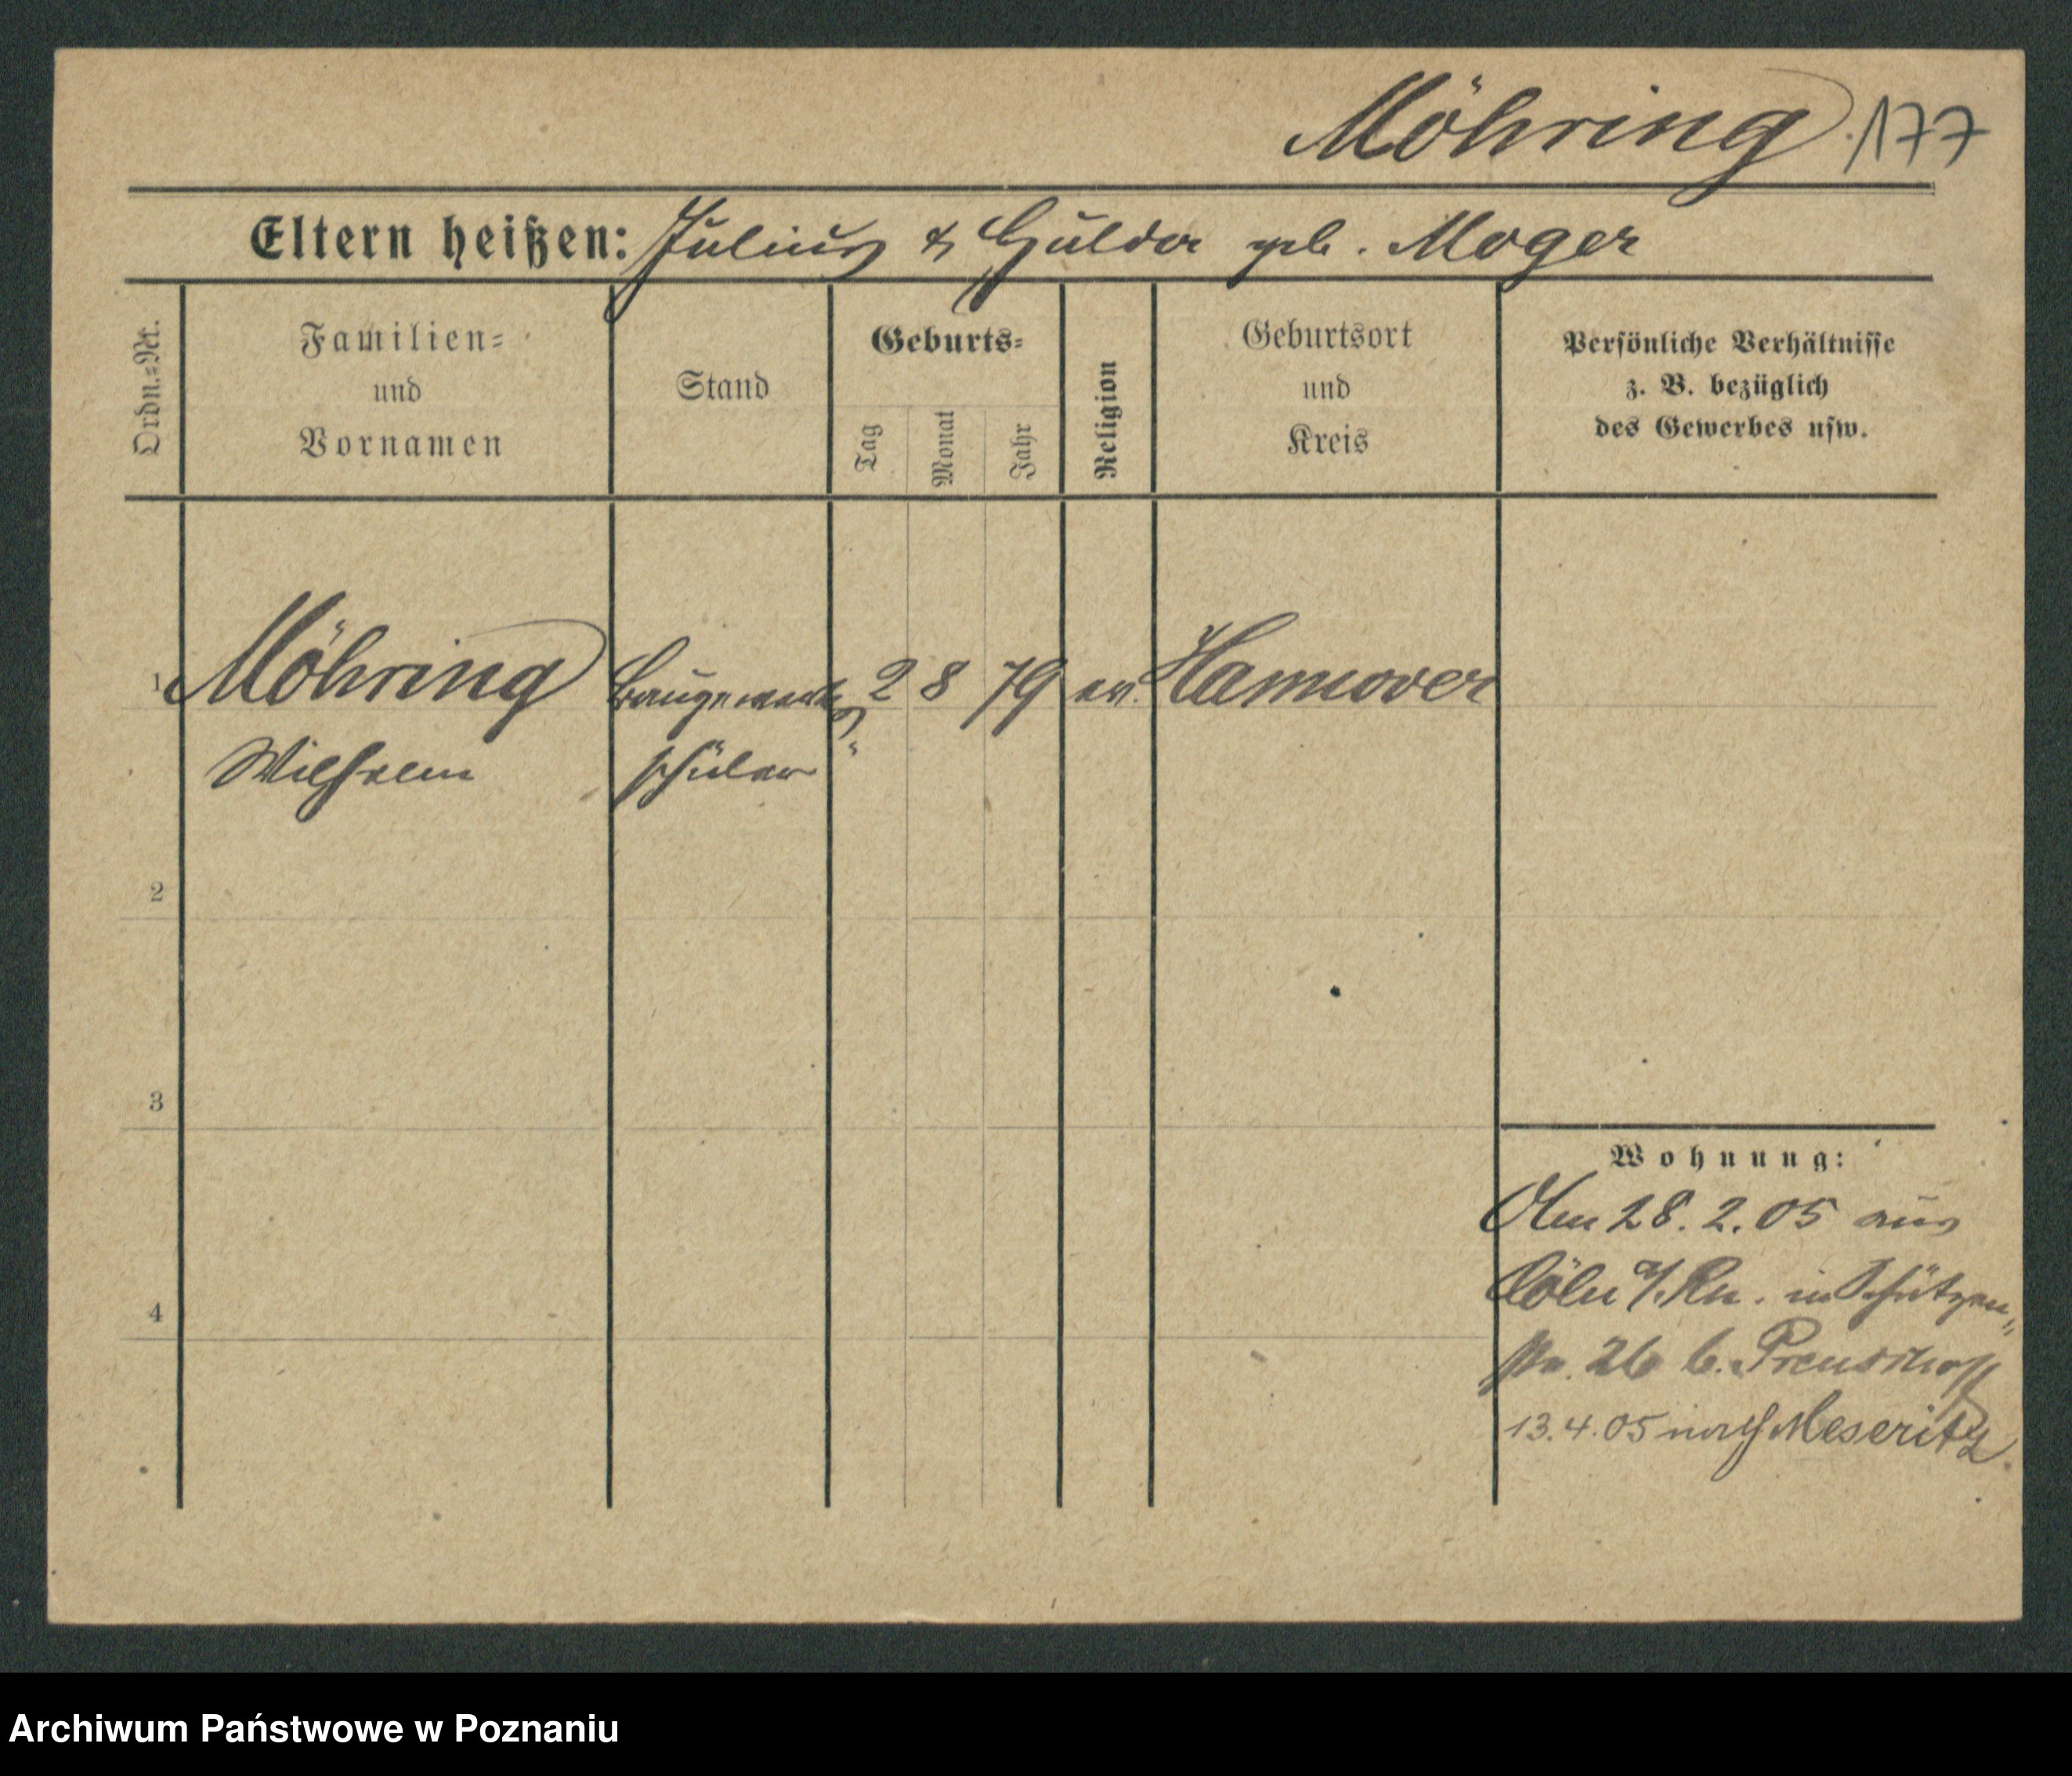 Möhring 177
Eltern heißen: Julius & Hulda geb. Moger
Ordn.=Nr.
Familien=
und
Vornamen
Stand
Geburts=
Tag
Monat
Jahr
Religion
Geburtsort
und
Kreis
Persönliche Verhältnisse
z. B. bezüglich
des Gewerbes usw.
1 Möhring Baugewerks 2 8 79 ev. Hannover
Wilhelm schüler
2
3
4
Wohnung:
Am 28.2.05 aus
Cöln a/Rh. in Schützen=
str. 26 b.
13.4.05 nach Meseritz.
Archiwum Państwowe w Poznaniu